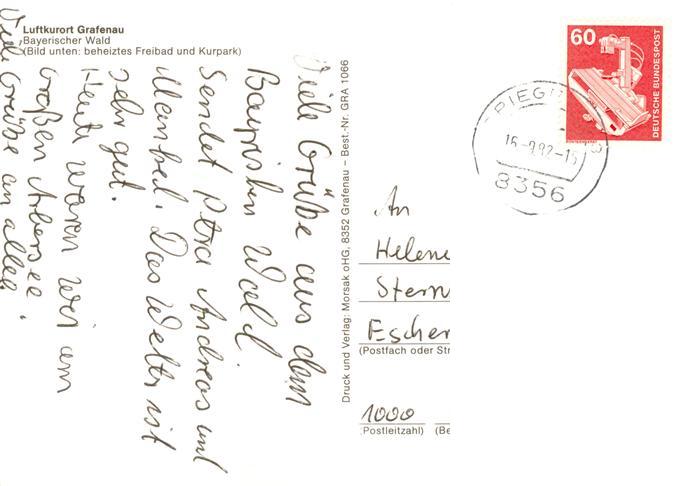 Luftkurort Grafenau
Bayerischer Wald
(Bild unten: beheiztes Freibad und Kurpark)
Viele Grüße aus dem
Bayrishen Wald
Sendet Petra Andreas und
Das Wetter ist
sehr gut.
Heute waren wir am
Großen Arbersee.
Viele Grüße an alle
Druck und Verlag: Morsak oHG, 8352 Grafenau – Best.-Nr. GRA 1066
60
DEUTSCHE BUNDESPOST
8356
An
Helene
Stern
Escher
(Postfach oder Str
1000
(Postleitzahl) (Be